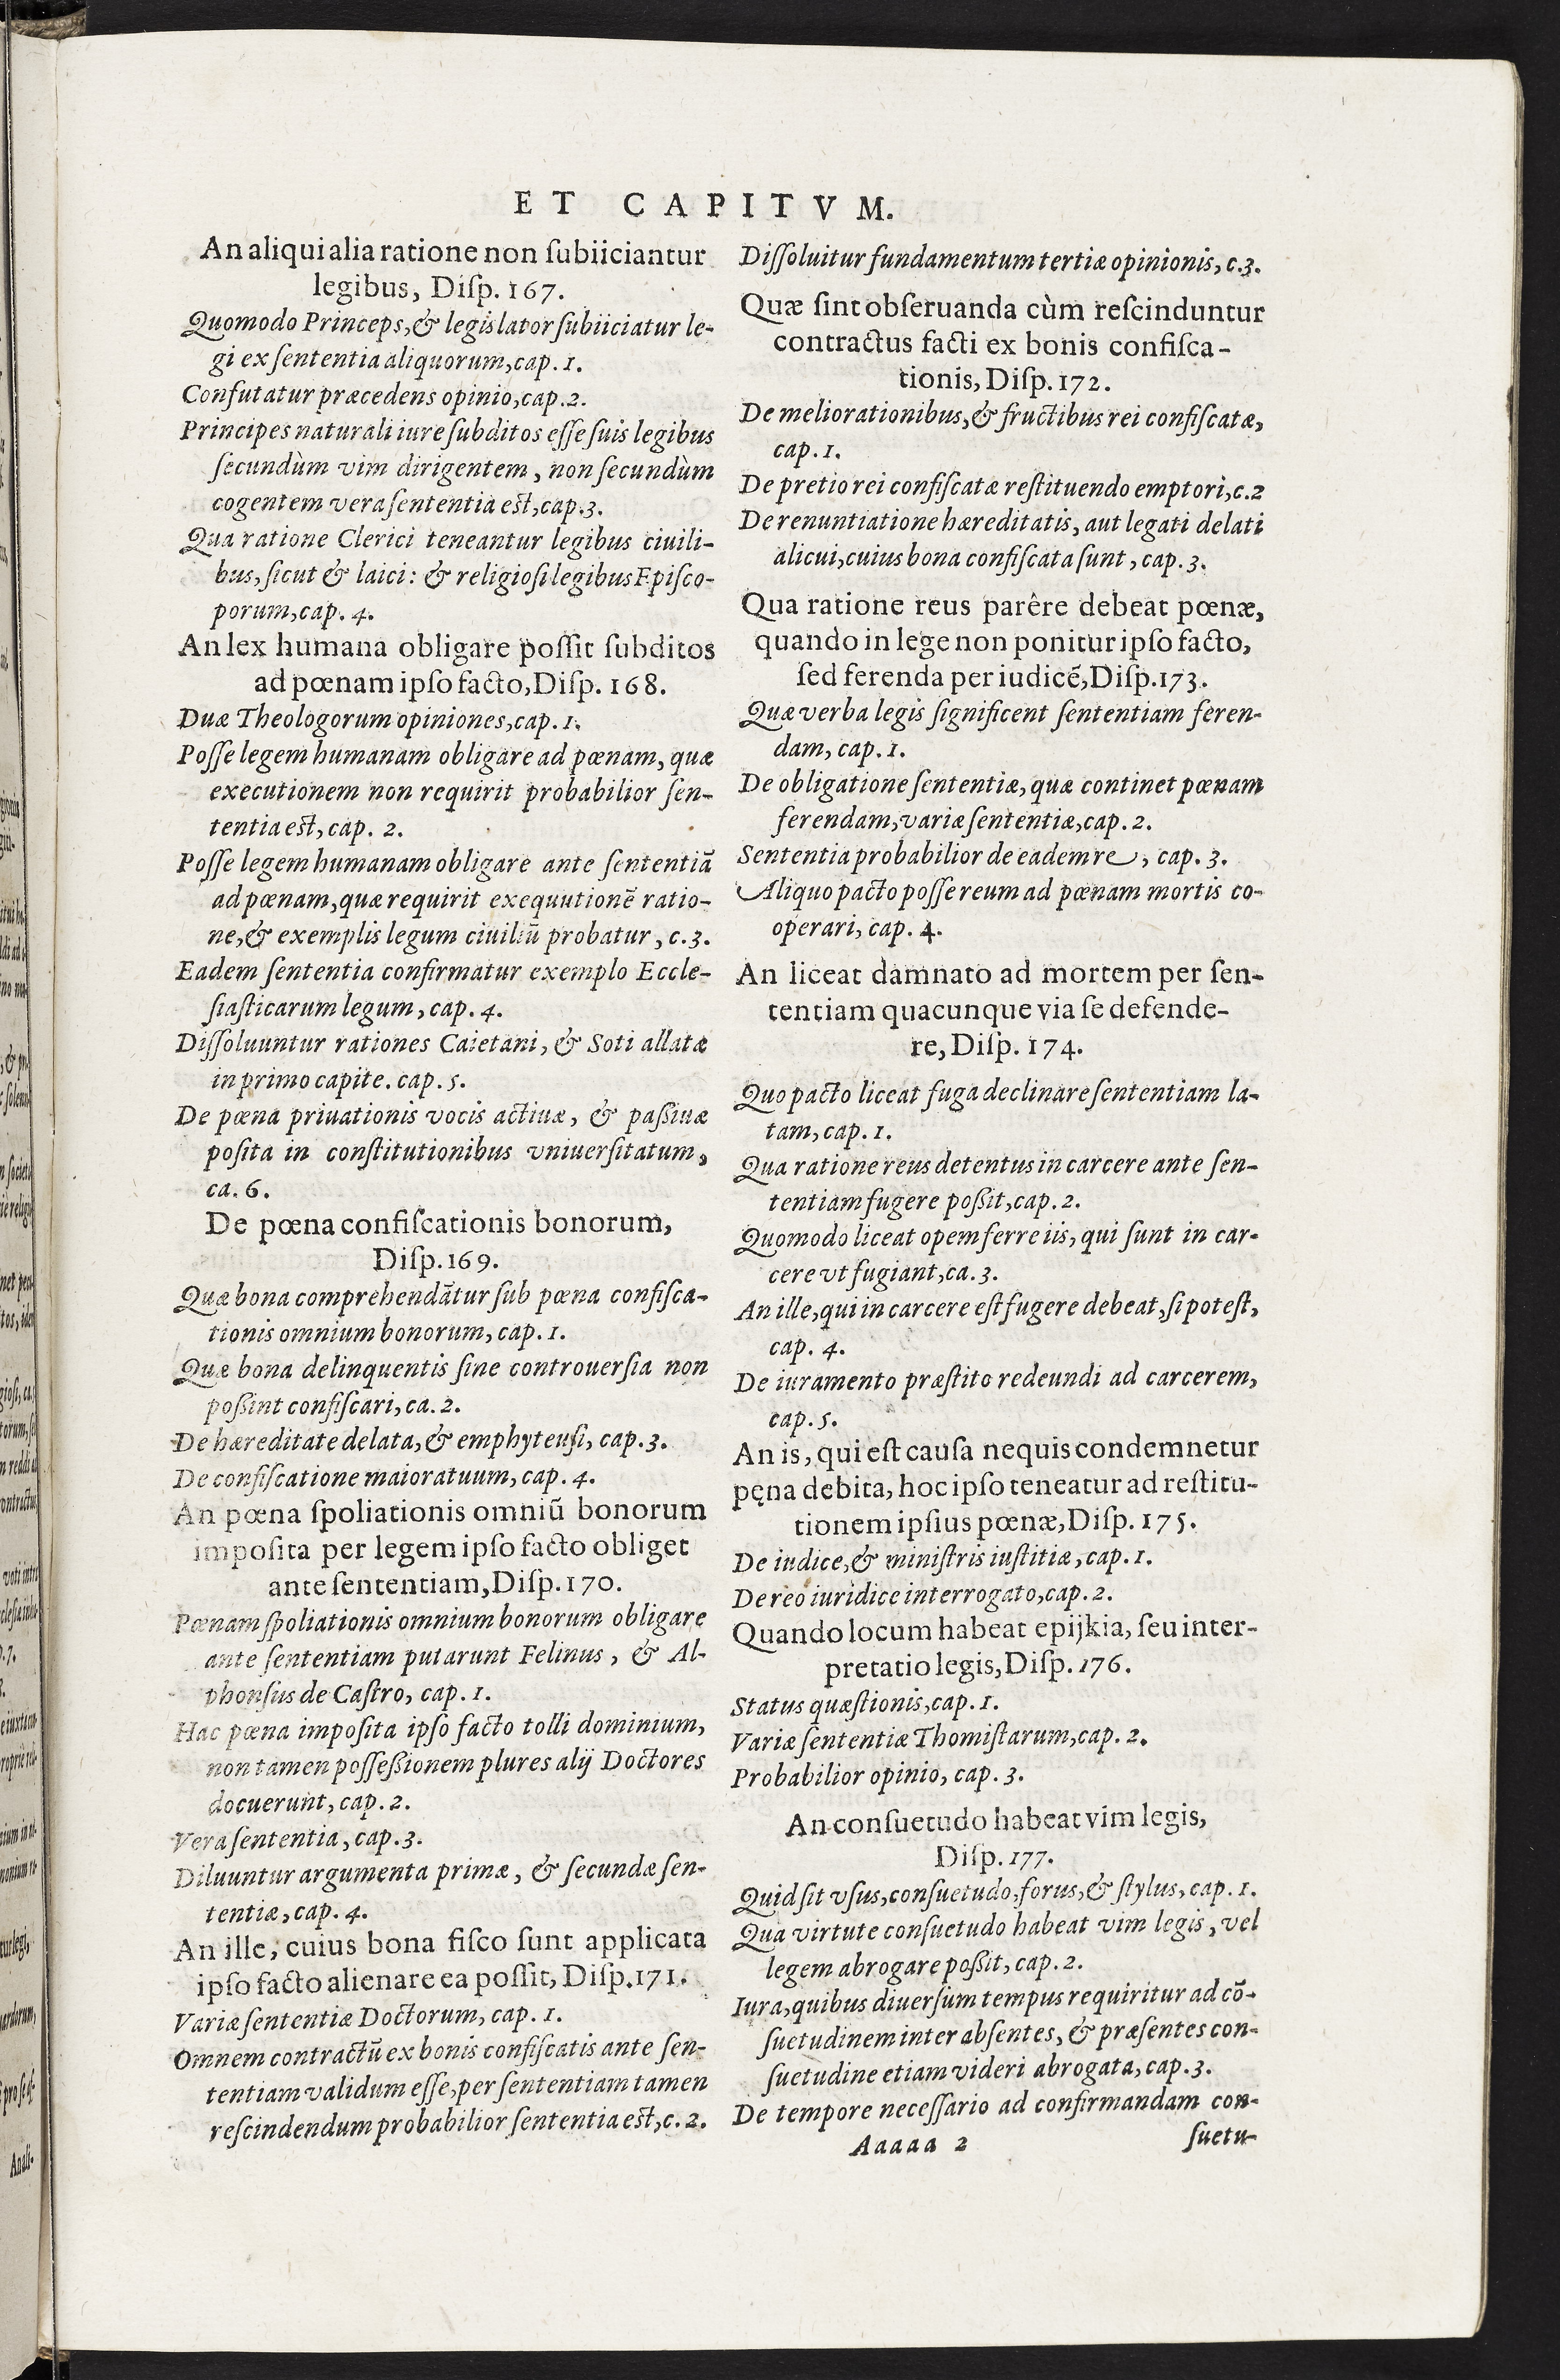 ET CAPITVM.
An aliqui alia ratione non ſubiiciantur
legibus, Diſp. 167.
Quomodo Princeps, & legislator ſubiiciatur le-
gi ex ſententia aliquorum, cap. 1.
Confutatur præcedens opinio, cap. 2.
Principes naturali iure ſubditos eſſe ſuis legibus
ſecundùm vim dirigentem, non ſecundùm
cogentem vera ſententia est, cap. 3.
Qua ratione Clerici teneantur legibus ciuili-
bus, ſicut & laici: & religioſi legibus Epiſco-
porum, cap. 4.
An lex humana obligare poſſit ſubditos
ad pœnam ipſo facto, Diſp. 168.
Duæ Theologorum opiniones, cap. 1.
Poſſe legem humanam obligare ad pœnam, quæ
executionem non requirit probabilior ſen-
tentia est, cap. 2.
Poſſe legem humanam obligare ante ſententiā
ad pœnam, quæ requirit exequutionē ratio-
ne, & exemplis legum ciuiliū probatur, c. 3.
Eadem ſententia confirmatur exemplo Eccle-
ſiaſticarum legum, cap. 4.
Diſſoluuntur rationes Caietani, & Soti allatæ
in primo capite. cap. 5.
De pœna priuationis vocis actiuæ, & paßiuæ
poſita in conſtitutionibus vniuerſitatum,
ca. 6.
De pœna confiſcationis bonorum,
Diſp. 169.
Quæ bona comprehendātur ſub pœna confiſca-
tionis omnium bonorum, cap. 1.
Quæ bona delinquentis ſine controuerſia non
poßint confiſcari, ca. 2.
De hæreditate delata, & emphyteuſi, cap. 3.
De confiſcatione maioratuum, cap. 4.
An pœna ſpoliationis omniū bonorum
impoſita per legem ipſo facto obliget
ante ſententiam, Diſp. 170.
Pœnam ſpoliationis omnium bonorum obligare
ante ſententiam putarunt Felinus, & Al-
phonſus de Caſtro, cap. 1.
Hac pœna impoſita ipſo facto tolli dominium,
non tamen poſſeßionem plures alij Doctores
docuerunt, cap. 2.
Vera ſententia, cap. 3.
Diluuntur argumenta primæ, & ſecundæ ſen-
tentiæ, cap. 4.
An ille, cuius bona fiſco ſunt applicata
ipſo facto alienare ea poſſit, Diſp. 171.
Variæ ſententiæ Doctorum, cap. 1.
Omnem contractū ex bonis confiſcatis ante ſen-
tentiam validum eſſe, per ſententiam tamen
reſcindendum probabilior ſententia est, c. 2.
Diſſoluitur fundamentum tertiæ opinionis, c. 3.
Quæ ſint obſeruanda cùm reſcinduntur
contractus facti ex bonis confiſca-
tionis, Diſp. 172.
De meliorationibus, & fructibus rei confiſcatæ,
cap. 1.
De pretio rei confiſcatæ reſtituendo emptori, c. 2
De renuntiatione hæreditatis, aut legati delati
alicui, cuius bona confiſcata ſunt, cap. 3.
Qua ratione reus parêre debeat pœnæ,
quando in lege non ponitur ipſo facto,
ſed ferenda per iudicē, Diſp. 173.
Quæ verba legis ſignificent ſententiam feren-
dam, cap. 1.
De obligatione ſententiæ, quæ continet pœnam
ferendam, variæ ſententiæ, cap. 2.
Sententia probabilior de eadem re, cap. 3.
Aliquo pacto poſſe reum ad pœnam mortis co-
operari, cap. 4.
An liceat damnato ad mortem per ſen-
tentiam quacunque via ſe defende-
re, Diſp. 174.
Quo pacto liceat fuga declinare ſententiam la-
tam, cap. 1.
Qua ratione reus detentus in carcere ante ſen-
tentiam fugere poßit, cap. 2.
Quomodo liceat opem ferre iis, qui ſunt in car-
cere vt fugiant, ca. 3.
An ille, qui in carcere eſt fugere debeat, ſi poteſt,
cap. 4.
De iuramento præſtito redeundi ad carcerem,
cap. 5.
An is, qui eſt cauſa ne quis condemnetur
pęna debita, hoc ipſo teneatur ad reſtitu-
tionem ipſius pœnæ, Diſp. 175.
De iudice, & miniſtris iuſtitiæ, cap. 1.
De reo iuridice interrogato, cap. 2.
Quando locum habeat epijkia, ſeu inter-
pretatio legis, Diſp. 176.
Status quæſtionis, cap. 1.
Variæ ſententiæ Thomiſtarum, cap. 2.
Probabilior opinio, cap. 3.
An conſuetudo habeat vim legis,
Diſp. 177.
Quid ſit vſus, conſuetudo, forus, & ſtylus, cap. 1.
Qua virtute conſuetudo habeat vim legis, vel
legem abrogare poßit, cap. 2.
Iura, quibus diuerſum tempus requiritur ad cō-
ſuetudinem inter abſentes, & præſentes con-
ſuetudine etiam videri abrogata, cap. 3.
De tempore neceſſario ad confirmandam con-
Aaaaa 2 ſuetu-